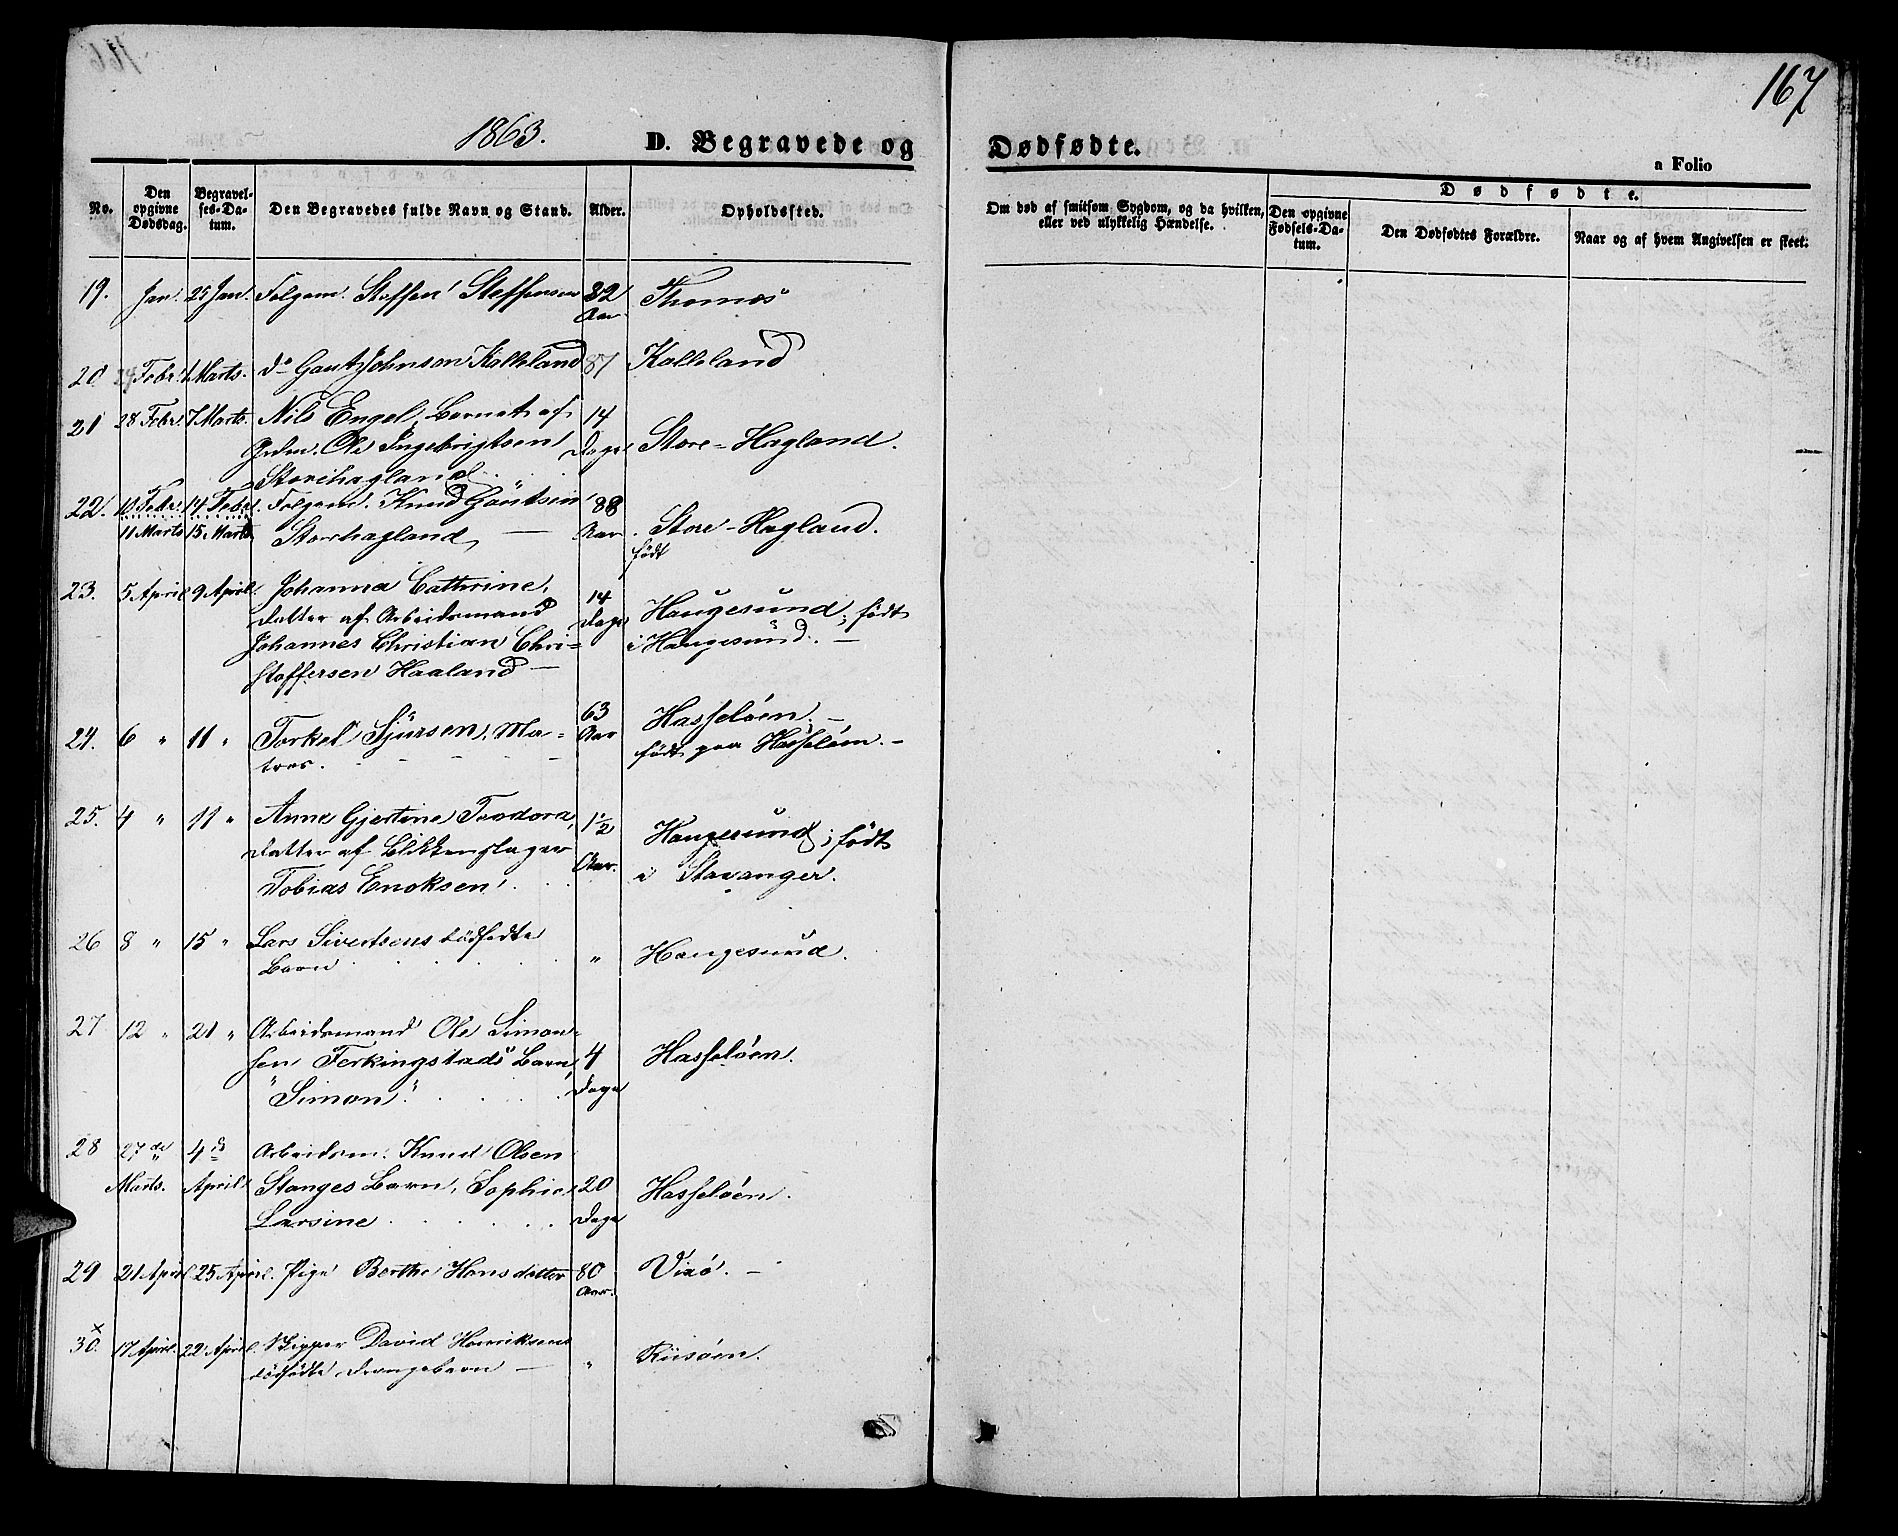 167
1863.
D. Begravede og Dødfødte.
a Folio
No.
Den opgivne Dødsdag.
Begravel-
ses-Da-
tum.
Den Begravedes fulde Navn og Stand.
Alder.
Opholdssted.
Om død af smitsom Sygdom, og da hvilken,
eller ved ulykkelig Hændelse.
Dødfødte.
Den opgivne
Fødsels-Da-
tum.
Den Dødfødtes Forældre.
Naar og af hvem Angivelsen er skeet.
19. Jan. 25 Jan. Folgem. Steffen Steffensen 82 Aar Thomæs
20. 24 Febr. 1 Marts. do Gaut Johnsen Kalleland 87 Kalleland
21 28 Febr. 7 Marts. Nils Engel, Barnet af 14
Grdm. Ole Ingebrigtsen Dage Store-Hagland.
Storehagland
22. 10 Febr. 14 Febr. Folgem. Knud Gautsen 88
11 Marts 15 Marts Storhagland, — Aar Store-Hagland.
født
23. 5 April 9 April. Johanna Cathrine, 14
Datter af Arbeidsmand Dage Haugesund; født
Johannes Christian Chri- i Haugesund. —
stoffersen Haaland —
24. 6 " 11 " Torkel Sjursen, Ma- 63 Aar Hasseløen; —
tros. født paa Hasseløen. —
25. 4 " 11 " Anne Gjertine Teodora, 1½ Haugesund; født
Datter af Blikkenslager Aar. i Stavanger.
Tobias Enoksen
26 8 " 15 " Lars Sivertsens dødfødte
Barn " Haugesund.
27 12 " 21 " Arbeidsmand Ole Simon-
sen Ferkingstads Barn, 4 Hasseløen.
"Simon". Dage
28 27de 4de Arbeidsm. Knud Olsen
Marts. April Stanges Barn, Sophie 20 Hasseløen.
Larsine Dage
29 21 April 25 April. Pige Berthe Hansdatter 80 Aar. Vixø. —
x
30. 17 April. 22 April. Skipper David Henriksens
dødfødte Drengebarn — " Riisøen.